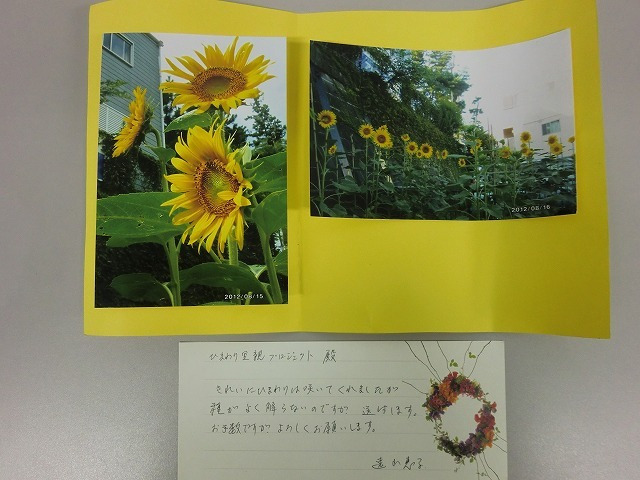 2012/08/15
2012/08/16
ひまわり里親プロジェクト 殿
きれいにひまわりは咲いてくれましたが
種が よく解らないのですが 送付します。
お手数ですが よろしくお願いします。